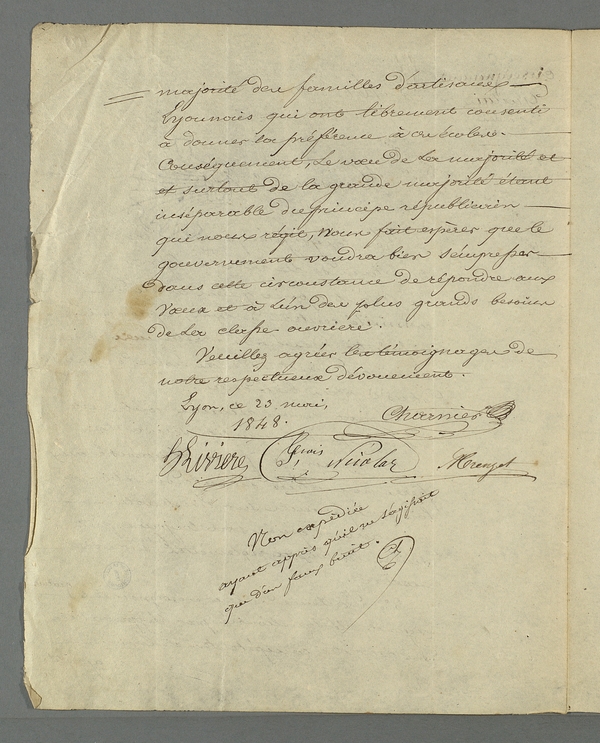 majorité des familles d'artisans
Lyonnais qui ont librement consenti
à donner la préférence à ces écoles.
Conséquemment, le vœu de la majorité et
et surtout de la grande majorité étant
inséparable du principe républicain
qui nous régit, nous fait espérer que le
gouvernement voudra bien s'empresser
dans cette circonstance de répondre aux
vœux et à l'un des plus grands besoins
de la classe ouvrière.
Veuillez agréer les témoignages de
notre respectueux dévouement.
Lyon, ce 23 mai,
1848.
Charnier
Rivière
Nicolas
Non expédiée
ayant appris qu'il ne s'agissait
que d'un faux bruit.